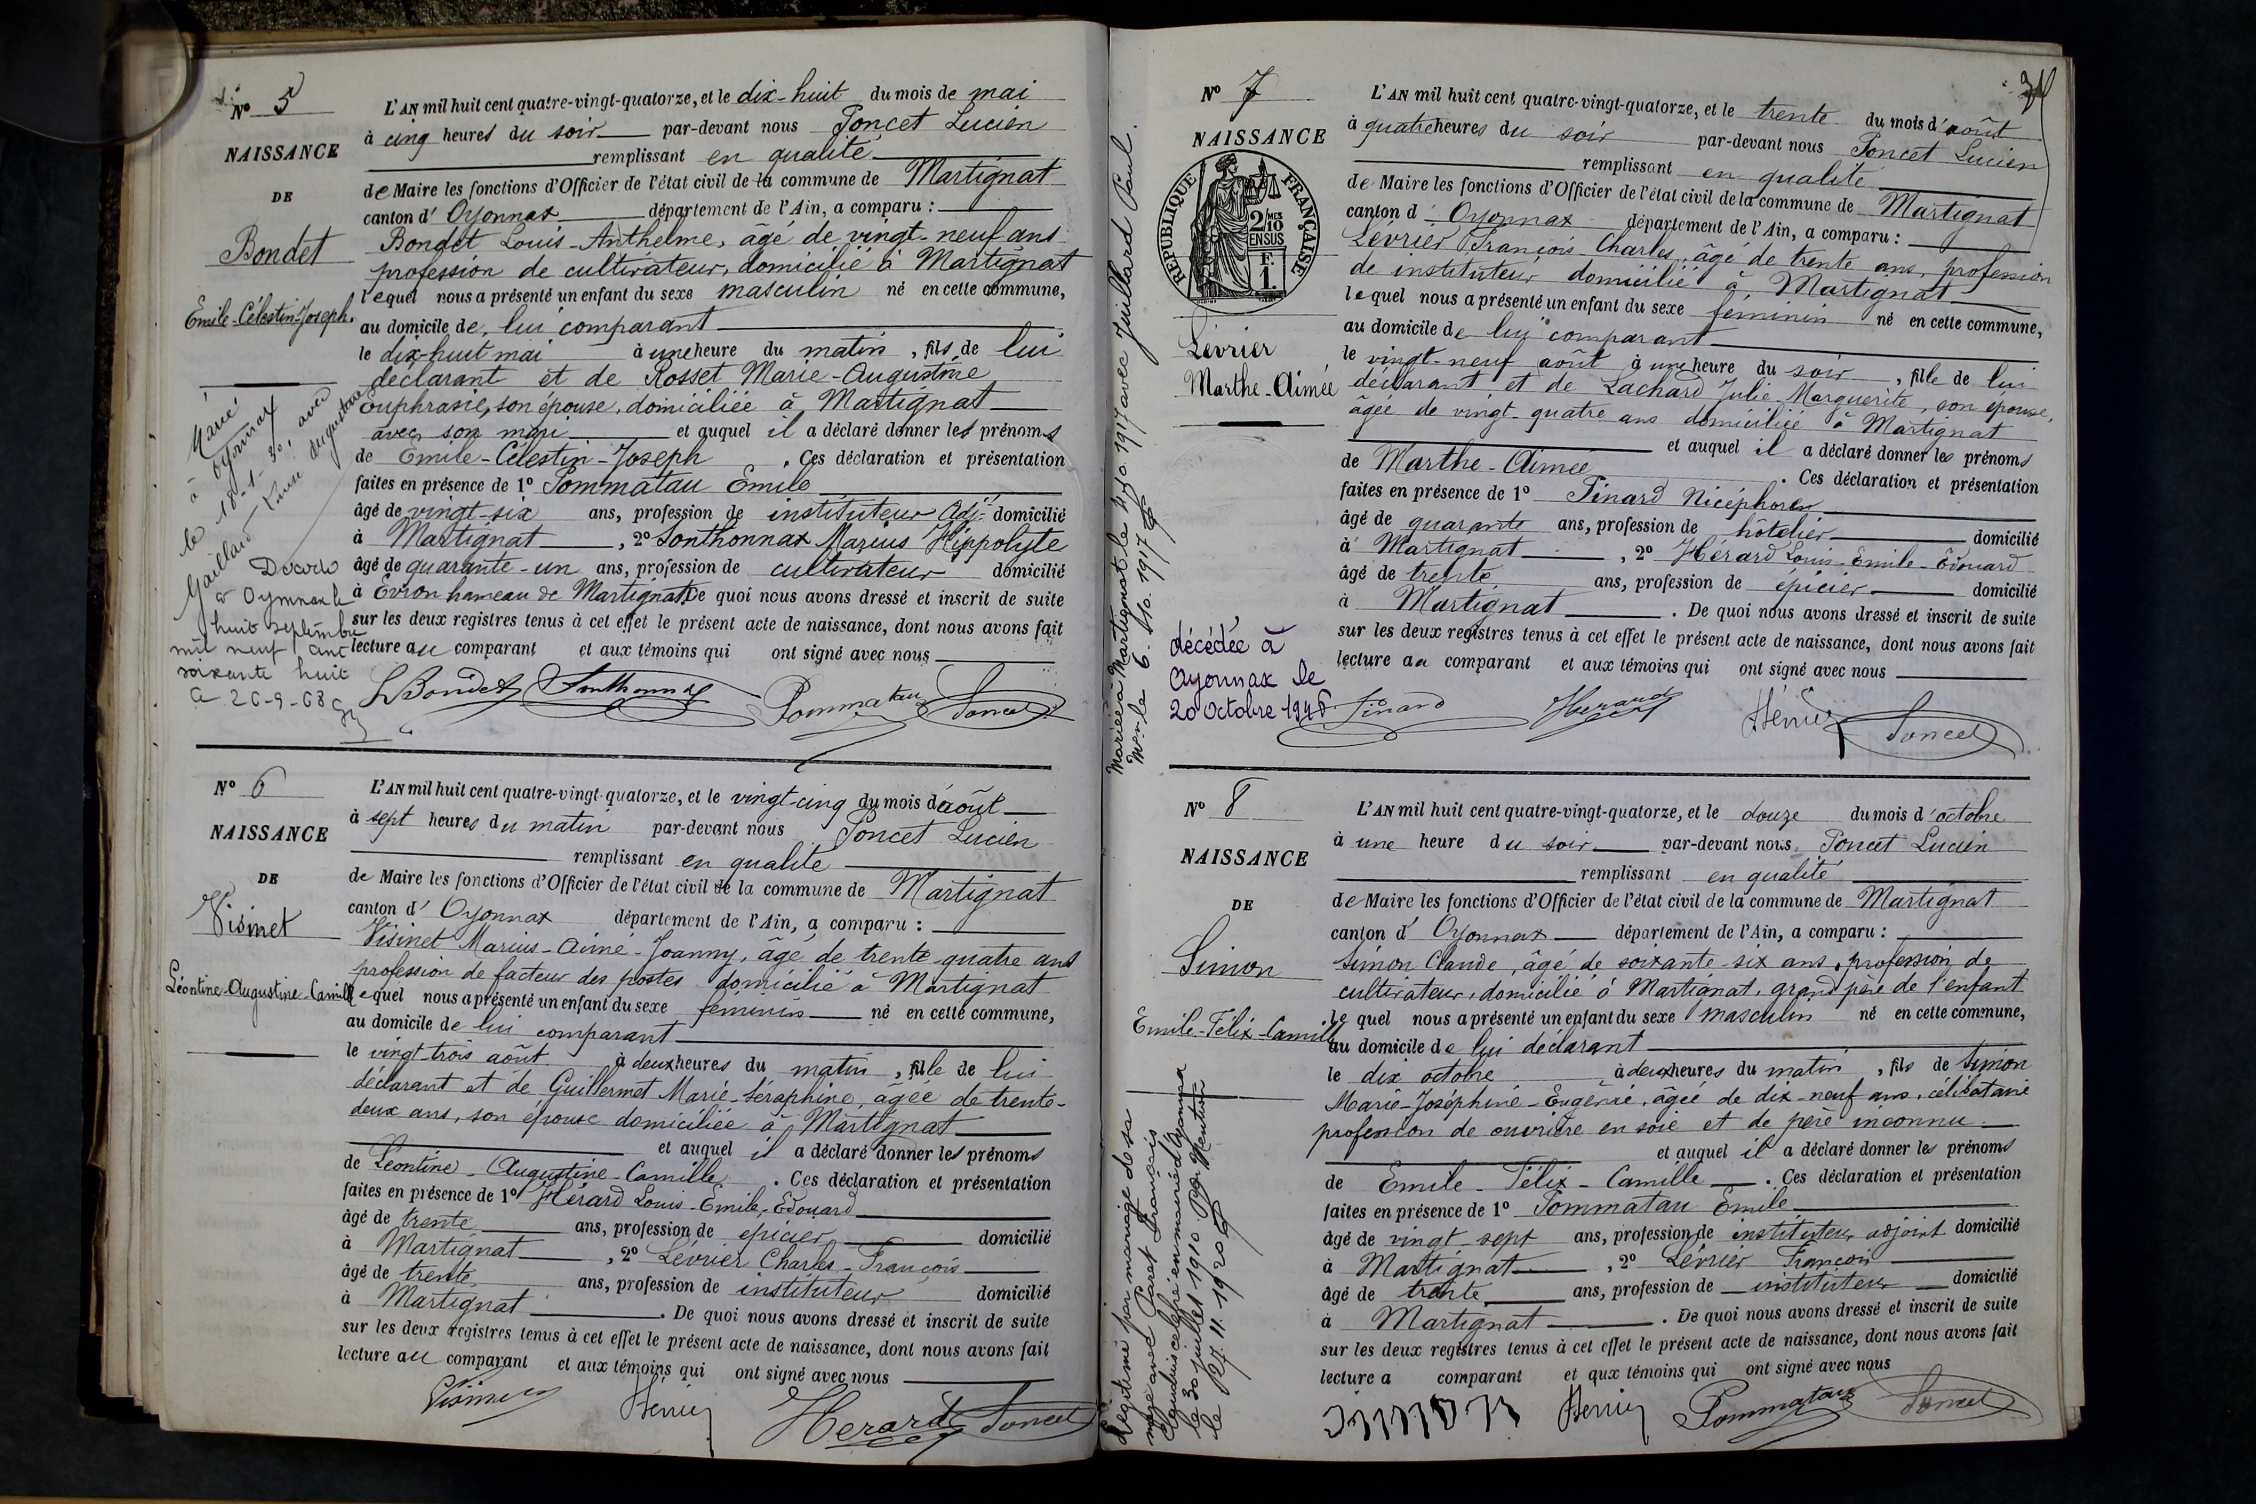 Nº 5
NAISSANCE
DE
Bondet
Emile-Célestin-Joseph.
Marié
à Oyonnax
le 18-1-30, avec
Gaillard Anne Augustine
Décédé
à Oyonnax le
huit septembre
mil neuf cent
soixante huit
Le 26-9-68
L'AN mil huit cent quatre-vingt-quatorze, et le dix-huit du mois de mai
à cinq heures du soir par-devant nous Poncet Lucien
remplissant en qualité
de Maire les fonctions d'Officier de l'état civil de la commune de Martignat
canton d' Oyonnax département de l'Ain, a comparu :
Bondet Louis-Anthelme, âgé de vingt-neuf ans
profession de cultivateur, domicilié à Martignat
lequel nous a présenté un enfant du sexe masculin né en cette commune,
au domicile de lui comparant
le dix-huit mai à une heure du matin, fils de lui
déclarant et de Rosset Marie-Augustine
Euphrasie, son épouse, domiciliée à Martignat
avec son mari et auquel il a déclaré donner les prénoms
de Emile-Célestin-Joseph. Ces déclaration et présentation
faites en présence de 1º Pommatau Emile
âgé de vingt-six ans, profession de instituteur adj. domicilié
à Martignat, 2º Sonthonnax Marius Hippolyte
âgé de quarante-un ans, profession de cultivateur domicilié
à Evron hameau de Martignat. De quoi nous avons dressé et inscrit de suite
sur les deux registres tenus à cet effet le présent acte de naissance, dont nous avons fait
lecture au comparant et aux témoins qui ont signé avec nous
L Bondet Sonthonnax Pommatau Poncet
Nº 6
NAISSANCE
DE
Visinet
Léontine-Augustine-Camille
L'AN mil huit cent quatre-vingt-quatorze, et le vingt-cinq du mois d'août
à sept heures du matin par-devant nous Poncet Lucien
remplissant en qualité
de Maire les fonctions d'Officier de l'état civil de la commune de Martignat
canton d' Oyonnax département de l'Ain, a comparu :
Visinet Marius-Aimé-Joanny, âgé de trente-quatre ans
profession de facteur des postes domicilié à Martignat
lequel nous a présenté un enfant du sexe féminin né en cette commune,
au domicile de lui comparant
le vingt-trois août à deux heures du matin, fille de lui
déclarant et de Guillermet Marie-Séraphine, âgée de trente-
deux ans, son épouse domiciliée à Martignat
et auquel il a déclaré donner les prénoms
de Léontine-Augustine-Camille. Ces déclaration et présentation
faites en présence de 1º Hérard Louis-Emile-Edouard
âgé de trente ans, profession de épicier domicilié
à Martignat, 2º Lévrier Charles-François
âgé de trente ans, profession de instituteur domicilié
à Martignat. De quoi nous avons dressé et inscrit de suite
sur les deux registres tenus à cet effet le présent acte de naissance, dont nous avons fait
lecture au comparant et aux témoins qui ont signé avec nous
Visinet Lévrier Herard Poncet
Nº 7
NAISSANCE
RÉPUBLIQUE FRANÇAISE
2/10 MES
EN SUS
F.
1.
Lévrier
Marthe-Aimée
Mariée à Martignat le 4 10. 1917 avec Juillard Paul.
décédée à
Oyonnax le
20 Octobre 1946
L'AN mil huit cent quatre-vingt-quatorze, et le trente du mois d'août
à quatre heures du soir par-devant nous Poncet Lucien
remplissant en qualité
de Maire les fonctions d'Officier de l'état civil de la commune de Martignat
canton d' Oyonnax département de l'Ain, a comparu :
Lévrier François-Charles, âgé de trente ans, profession
de instituteur domicilié à Martignat
lequel nous a présenté un enfant du sexe féminin né en cette commune,
au domicile de lui comparant
le vingt-neuf août à une heure du soir, fille de lui
déclarant et de Lachard Julie Marguerite, son épouse,
âgée de vingt-quatre ans domiciliée à Martignat
et auquel il a déclaré donner les prénoms
de Marthe-Aimée. Ces déclaration et présentation
faites en présence de 1º Pinard Nicéphore
âgé de quarante ans, profession de hôtelier domicilié
à Martignat, 2º Hérard Louis-Emile-Edouard
âgé de trente ans, profession de épicier domicilié
à Martignat. De quoi nous avons dressé et inscrit de suite
sur les deux registres tenus à cet effet le présent acte de naissance, dont nous avons fait
lecture au comparant et aux témoins qui ont signé avec nous
Pinard Herard Lévrier Poncet
Nº 8
NAISSANCE
DE
Simon
Emile-Félix-Camille
Légitimé par mariage de sa
mère avec Paret François
le 30 juillet 1910.
le 27.11.1920
L'AN mil huit cent quatre-vingt-quatorze, et le douze du mois d'octobre
à une heure du soir par-devant nous Poncet Lucien
remplissant en qualité
de Maire les fonctions d'Officier de l'état civil de la commune de Martignat
canton d' Oyonnax département de l'Ain, a comparu :
Simon Claude, âgé de soixante-six ans, profession de
cultivateur, domicilié à Martignat, grand père de l'enfant
lequel nous a présenté un enfant du sexe masculin né en cette commune,
au domicile de lui déclarant
le dix octobre à deux heures du matin, fils de Simon
Marie-Joséphine-Eugénie, âgée de dix-neuf ans, célibataire
profession de ouvrière en soie et de père inconnu.
et auquel il a déclaré donner les prénoms
de Emile-Félix-Camille. Ces déclaration et présentation
faites en présence de 1º Pommatau Emile
âgé de vingt sept ans, profession de instituteur adjoint domicilié
à Martignat, 2º Lévrier François
âgé de trente ans, profession de instituteur domicilié
à Martignat. De quoi nous avons dressé et inscrit de suite
sur les deux registres tenus à cet effet le présent acte de naissance, dont nous avons fait
lecture a comparant et aux témoins qui ont signé avec nous
simon Lévrier Pommatau Poncet